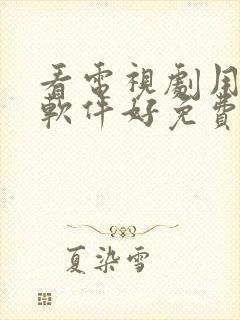 看電視劇用
軟件好免費
夏染雪